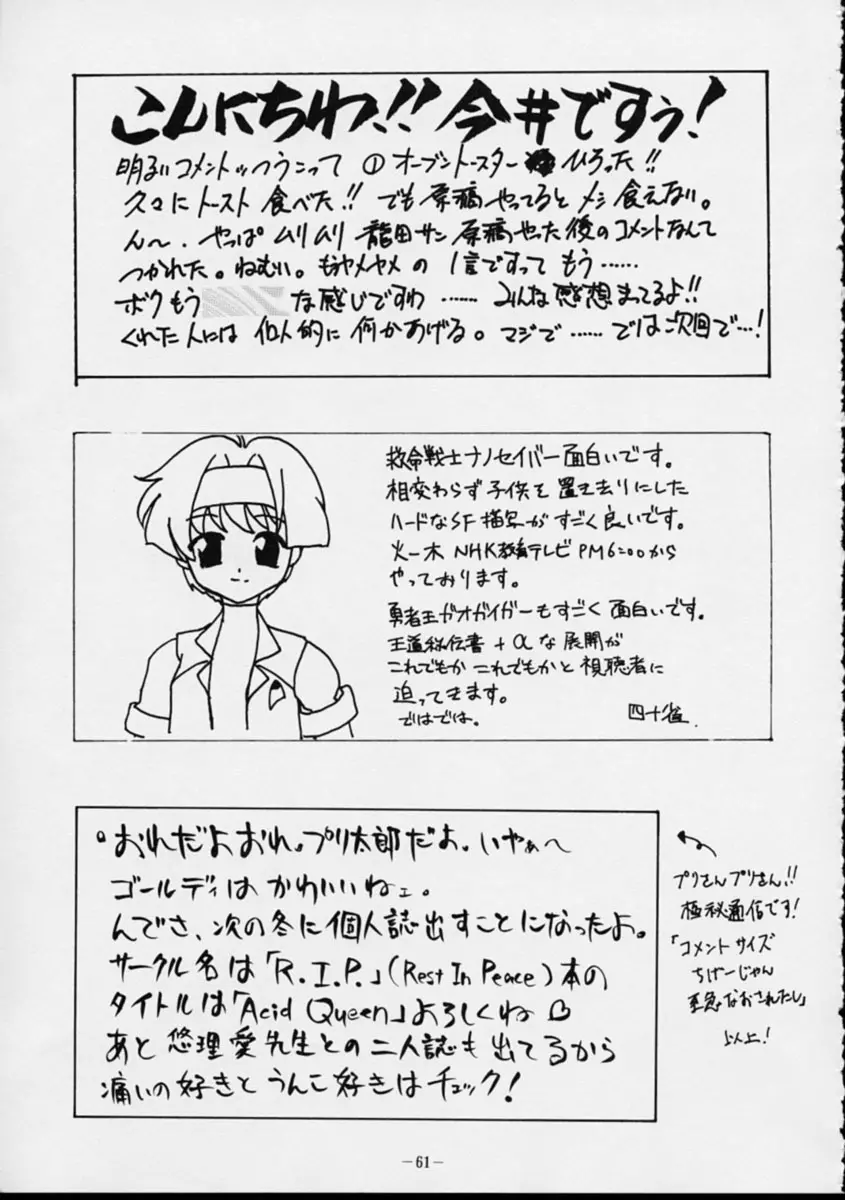 こんにちわ!! 今井ですぅ!
明るいコメントっつうこって ① オーブントースター ひろった!!
久々にトースト食べた!! でも原稿やってるとメシ食えない。
ん〜. やっぱムリムリ 龍田サン原稿やった後のコメントなんて
つかれた。ねむい。もうヤメヤメの1言ですって もう……
ボクもう な感じですわ …… みんな感想まってるよ!!
くれた人には個人的に何かあげる。マジで …… では次回で…!
救命戦士ナノセイバー面白いです。
相変わらず子供を置き去りにした
ハードなSF描写がすごく良いです。
火〜木 NHK教育テレビ PM6:00から
やっております。
勇者王ガオガイガーもすごく面白いです。
王道秘伝書 + αな展開が
これでもかこれでもかと視聴者に
迫ってきます。
ではでは。 四十雀.
おれだよおれ。プリ太郎だよ。いやぁ〜
ゴールディはかわいいねェ。
んでさ、次の冬に個人誌出すことになったよ。
サークル名は「R.I.P.」(Rest In Peace)本の
タイトルは「Acid Queen」よろしくね♡
あと悠理愛先生との二人誌も出てるから
痛いの好きとうんこ好きはチェック!
プリさんプリさん!!
極秘通信です!
「コメントサイズ
ちげーじゃん
至急なおされたし」
以上!
－61－